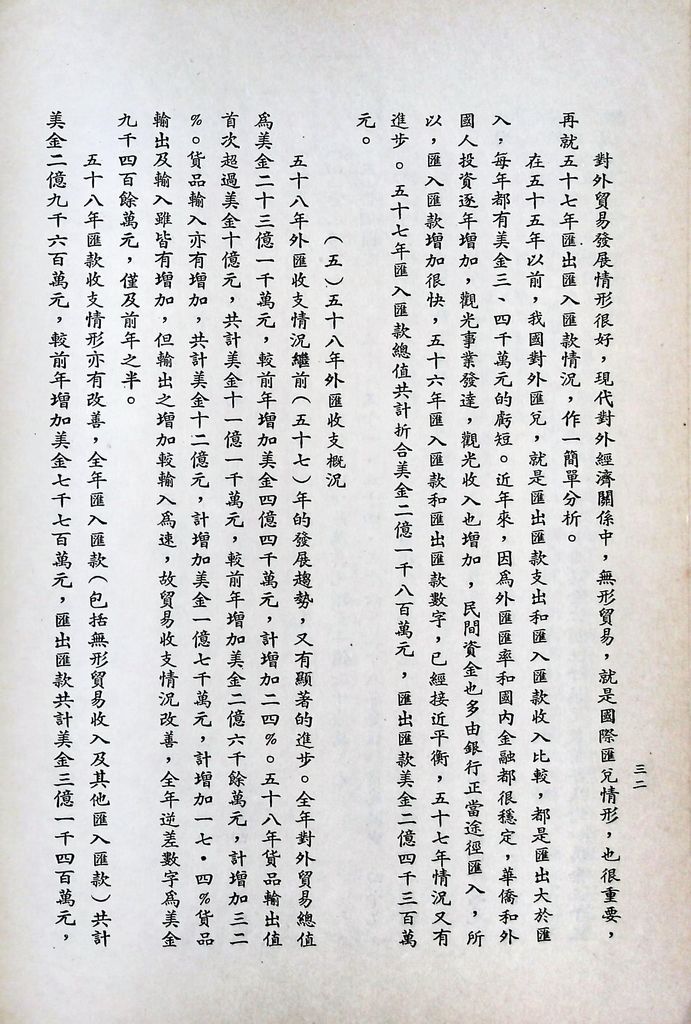 三二
對外貿易發展情形很好，現代對外經濟關係中，無形貿易，就是國際匯兌情形，也很重要，
再就五十七年匯出匯入匯款情況，作一簡單分析。
在五十五年以前，我國對外匯兌，就是匯出匯款支出和匯入匯款收入比較，都是匯出大於匯
入，每年都有美金三、四千萬元的虧短。近年來，因為外匯匯率和國內金融都很穩定，華僑和外
國人投資逐年增加，觀光事業發達，觀光收入也增加，民間資金也多由銀行正當途徑匯入，所
以，匯入匯款增加很快，五十六年匯入匯款和匯出匯款數字，已經接近平衡，五十七年情況又有
進步。五十七年匯入匯款總值共計折合美金二億一千八百萬元，匯出匯款美金二億四千三百萬
元。
（五）五十八年外匯收支概況
五十八年外匯收支情況繼前（五十七）年的發展趨勢，又有顯著的進步。全年對外貿易總值
為美金二十三億一千萬元，較前年增加美金四億四千萬元，計增加二四％。五十八年貨品輸出值
首次超過美金十億元，共計美金十一億一千萬元，較前年增加美金二億六千餘萬元，計增加三二
％。貨品輸入亦有增加，共計美金十二億元，計增加美金一億七千萬元，計增加一七·四％貨品
輸出及輸入雖皆有增加，但輸出之增加較輸入為速，故貿易收支情況改善，全年逆差數字為美金
九千四百餘萬元，僅及前年之半。
五十八年匯款收支情形亦有改善，全年匯入匯款（包括無形貿易收入及其他匯入匯款）共計
美金二億九千六百萬元，較前年增加美金七千七百萬元，匯出匯款共計美金三億一千四百萬元，